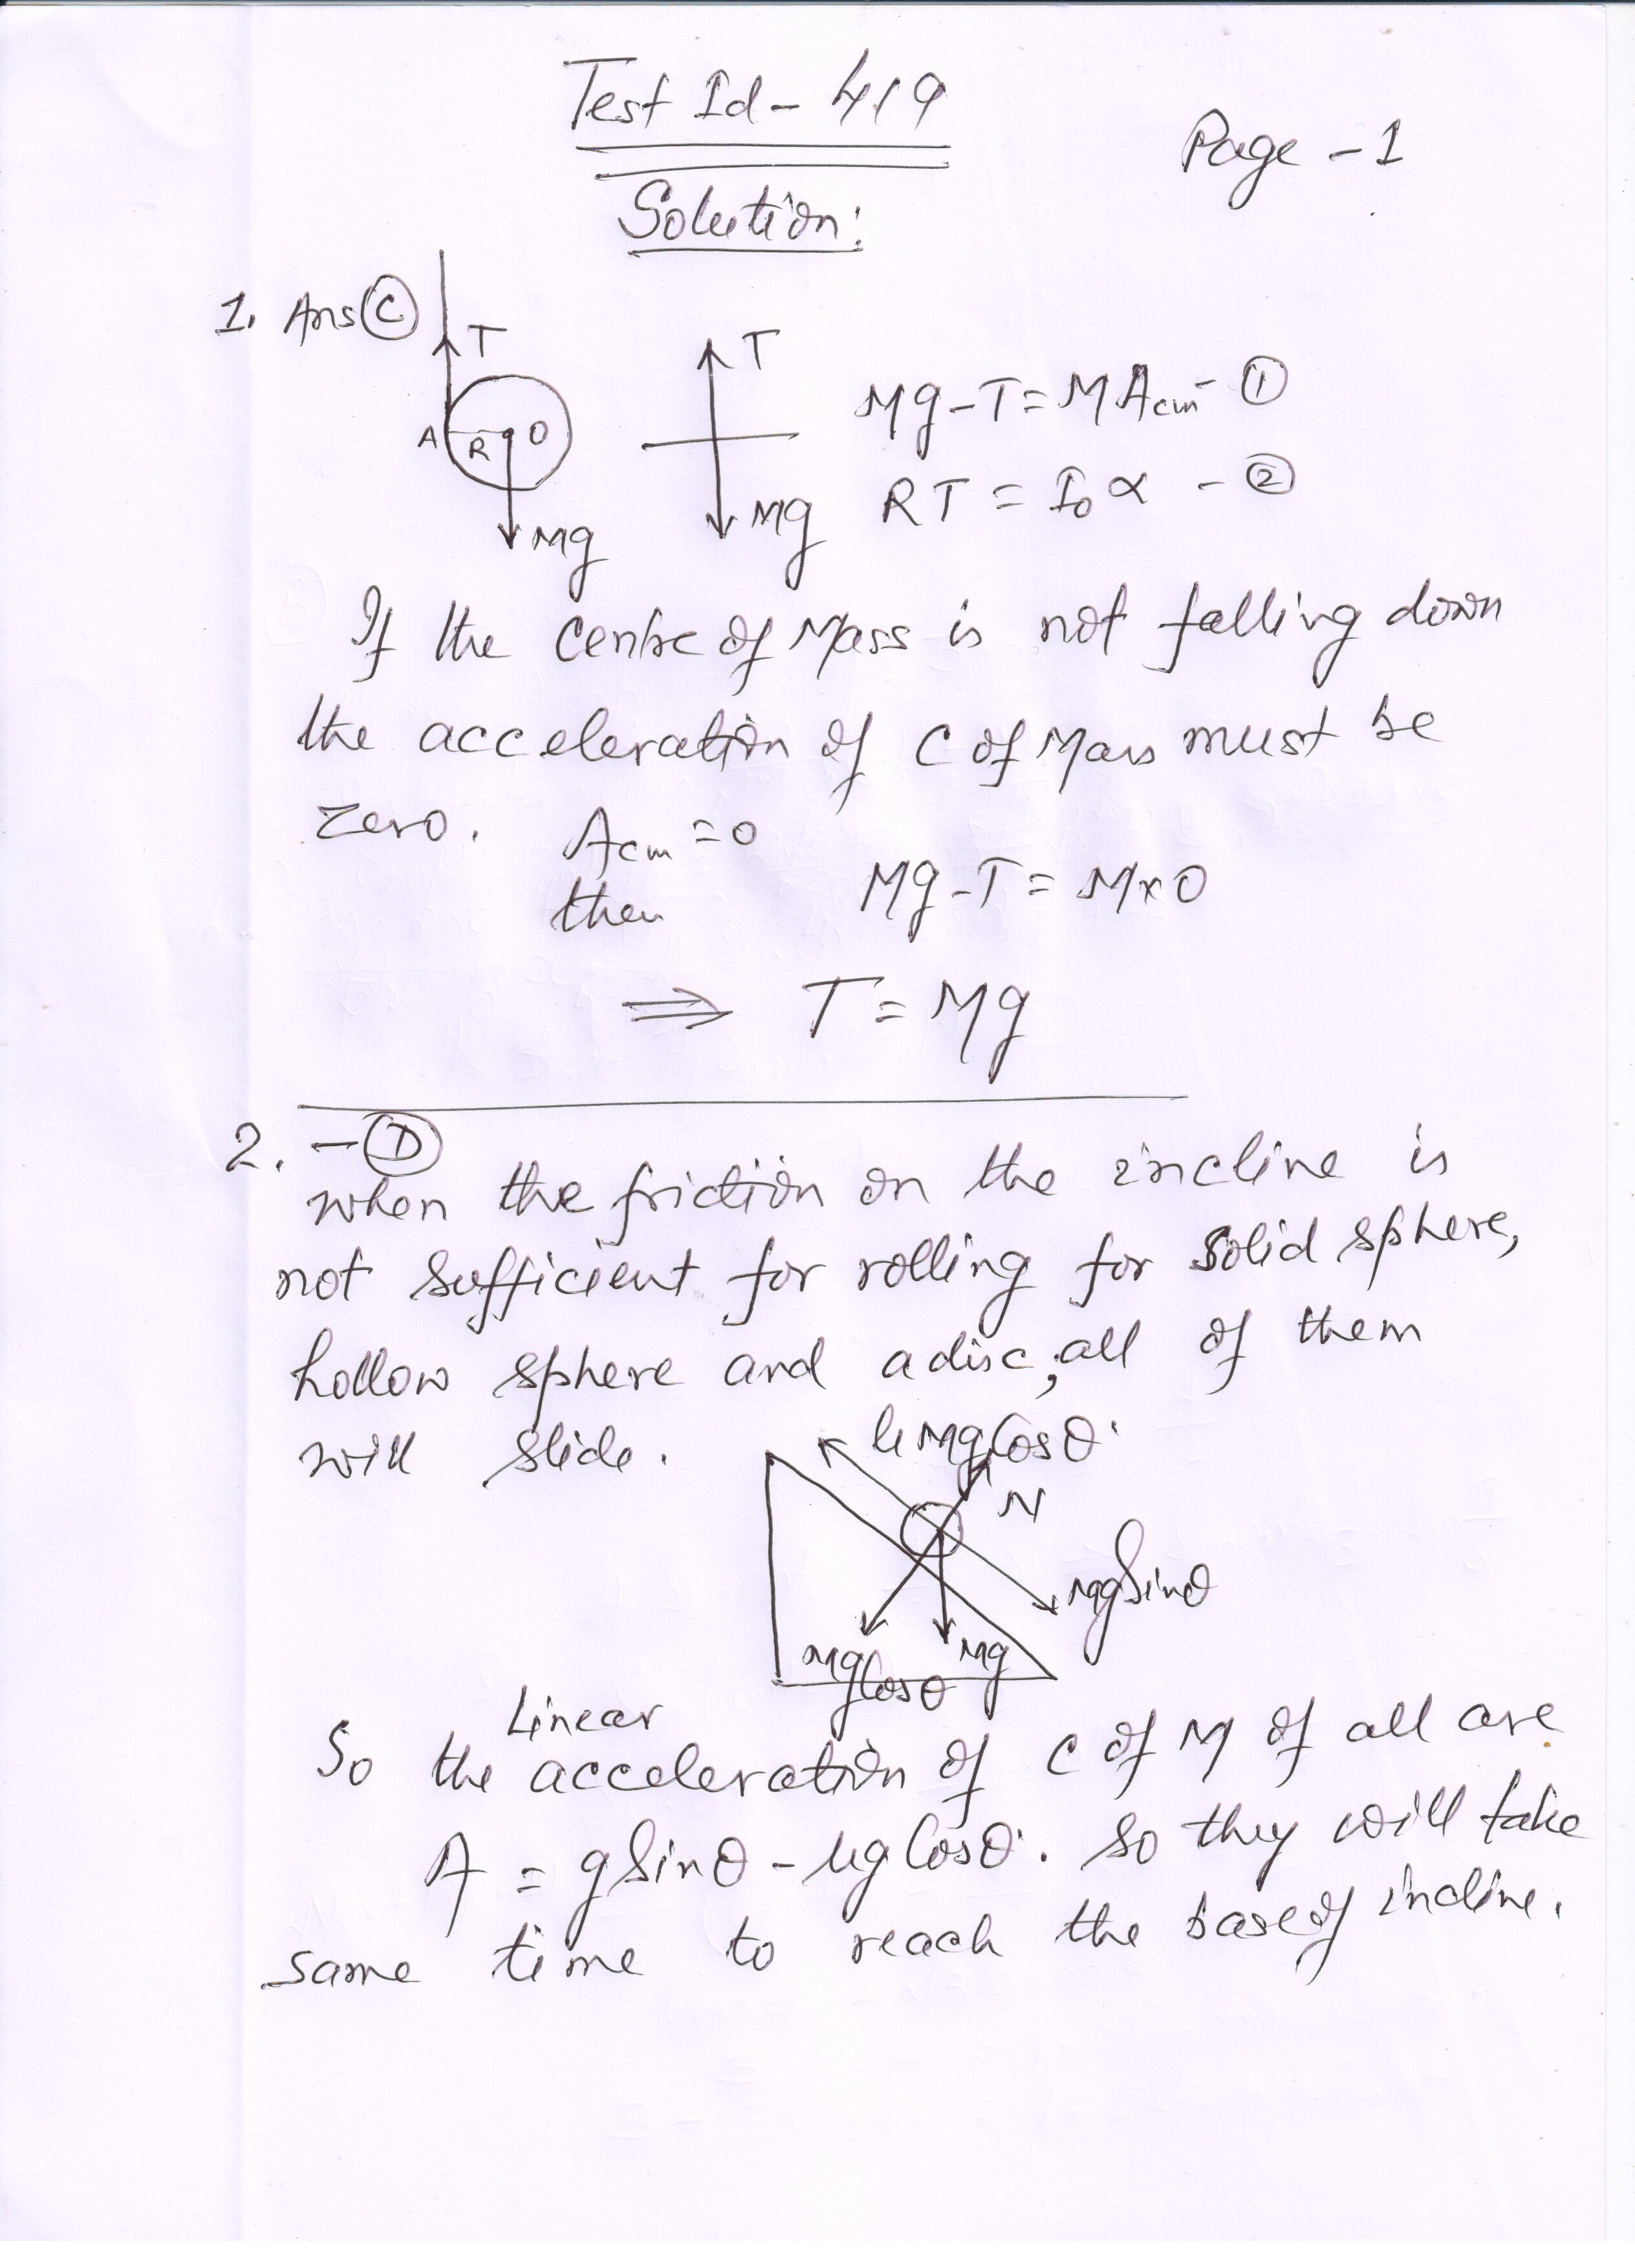 Test Id - 419
Page - 1
Solution:
1. Ans (C)
T
A R O
Mg
T
Mg
Mg - T = M Acm - (1)
RT = I₀ α - (2)
If the Centre of Mass is not falling down
the acceleration of C of Mass must be
zero. Acm = 0
then Mg - T = M x 0
⇒ T = Mg
2. - (D)
when the friction on the incline is
not sufficient for rolling for solid sphere,
hollow sphere and a disc, all of them
will slide.
μMgCosθ
N
MgSinθ
MgCosθ
Mg
So the Linear acceleration of C of M of all are
A = gSinθ - μgCosθ. So they will take
same time to reach the base of incline.